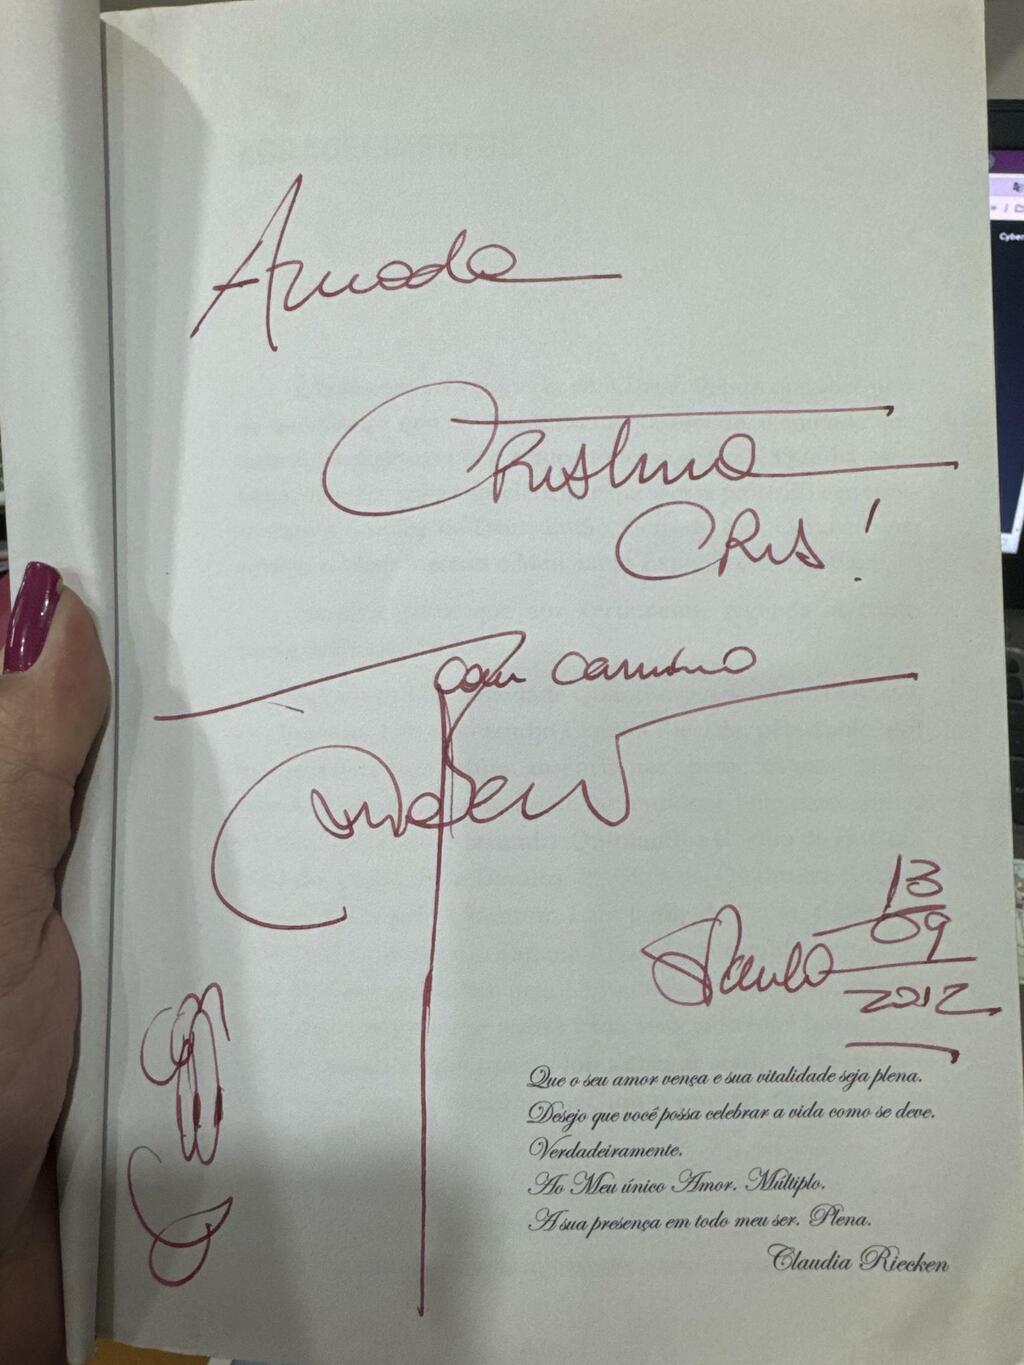 Amada
Cristina
Cris!
com carinho
SPaulo 13
09
2012
Que o seu amor vença e sua vitalidade seja plena.
Desejo que você possa celebrar a vida como se deve.
Verdadeiramente.
Ao Meu único Amor. Múltiplo.
A sua presença em todo meu ser. Plena.
Claudia Riecken